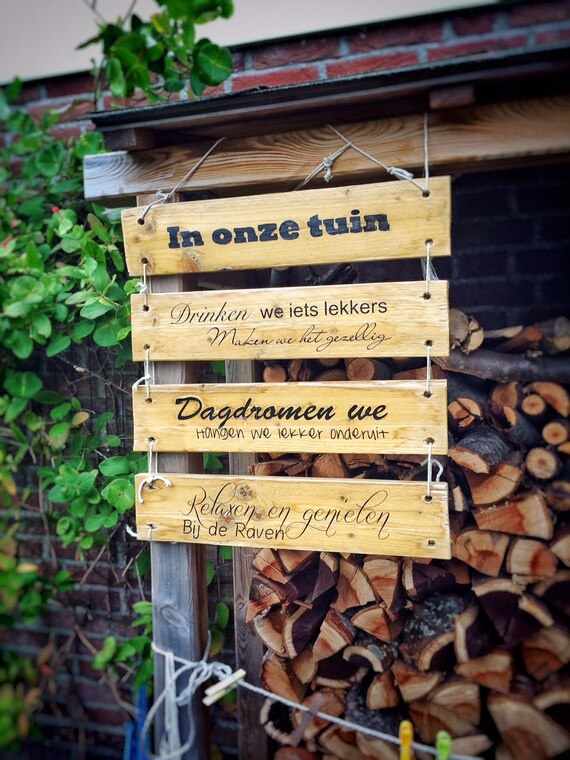 In onze tuin
Drinken we iets lekkers
Maken we het gezellig
Dagdromen we
Hangen we lekker onderuit
Relaxen en genieten
Bij de Raven